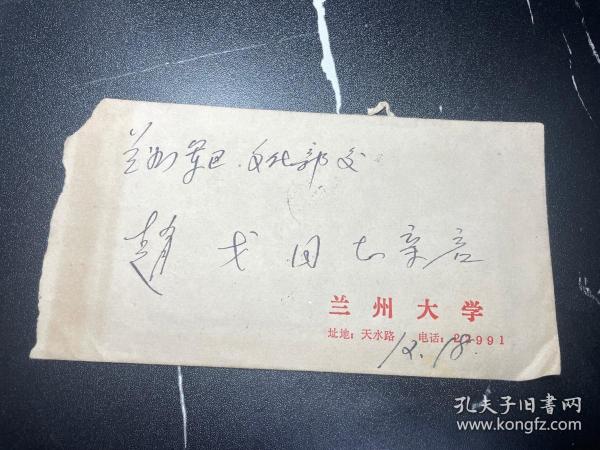 兰州军区文化部交
赵戈同志亲启
兰州大学
址地：天水路 电话：2991
12.18.
孔夫子旧书网
www.kongfz.com